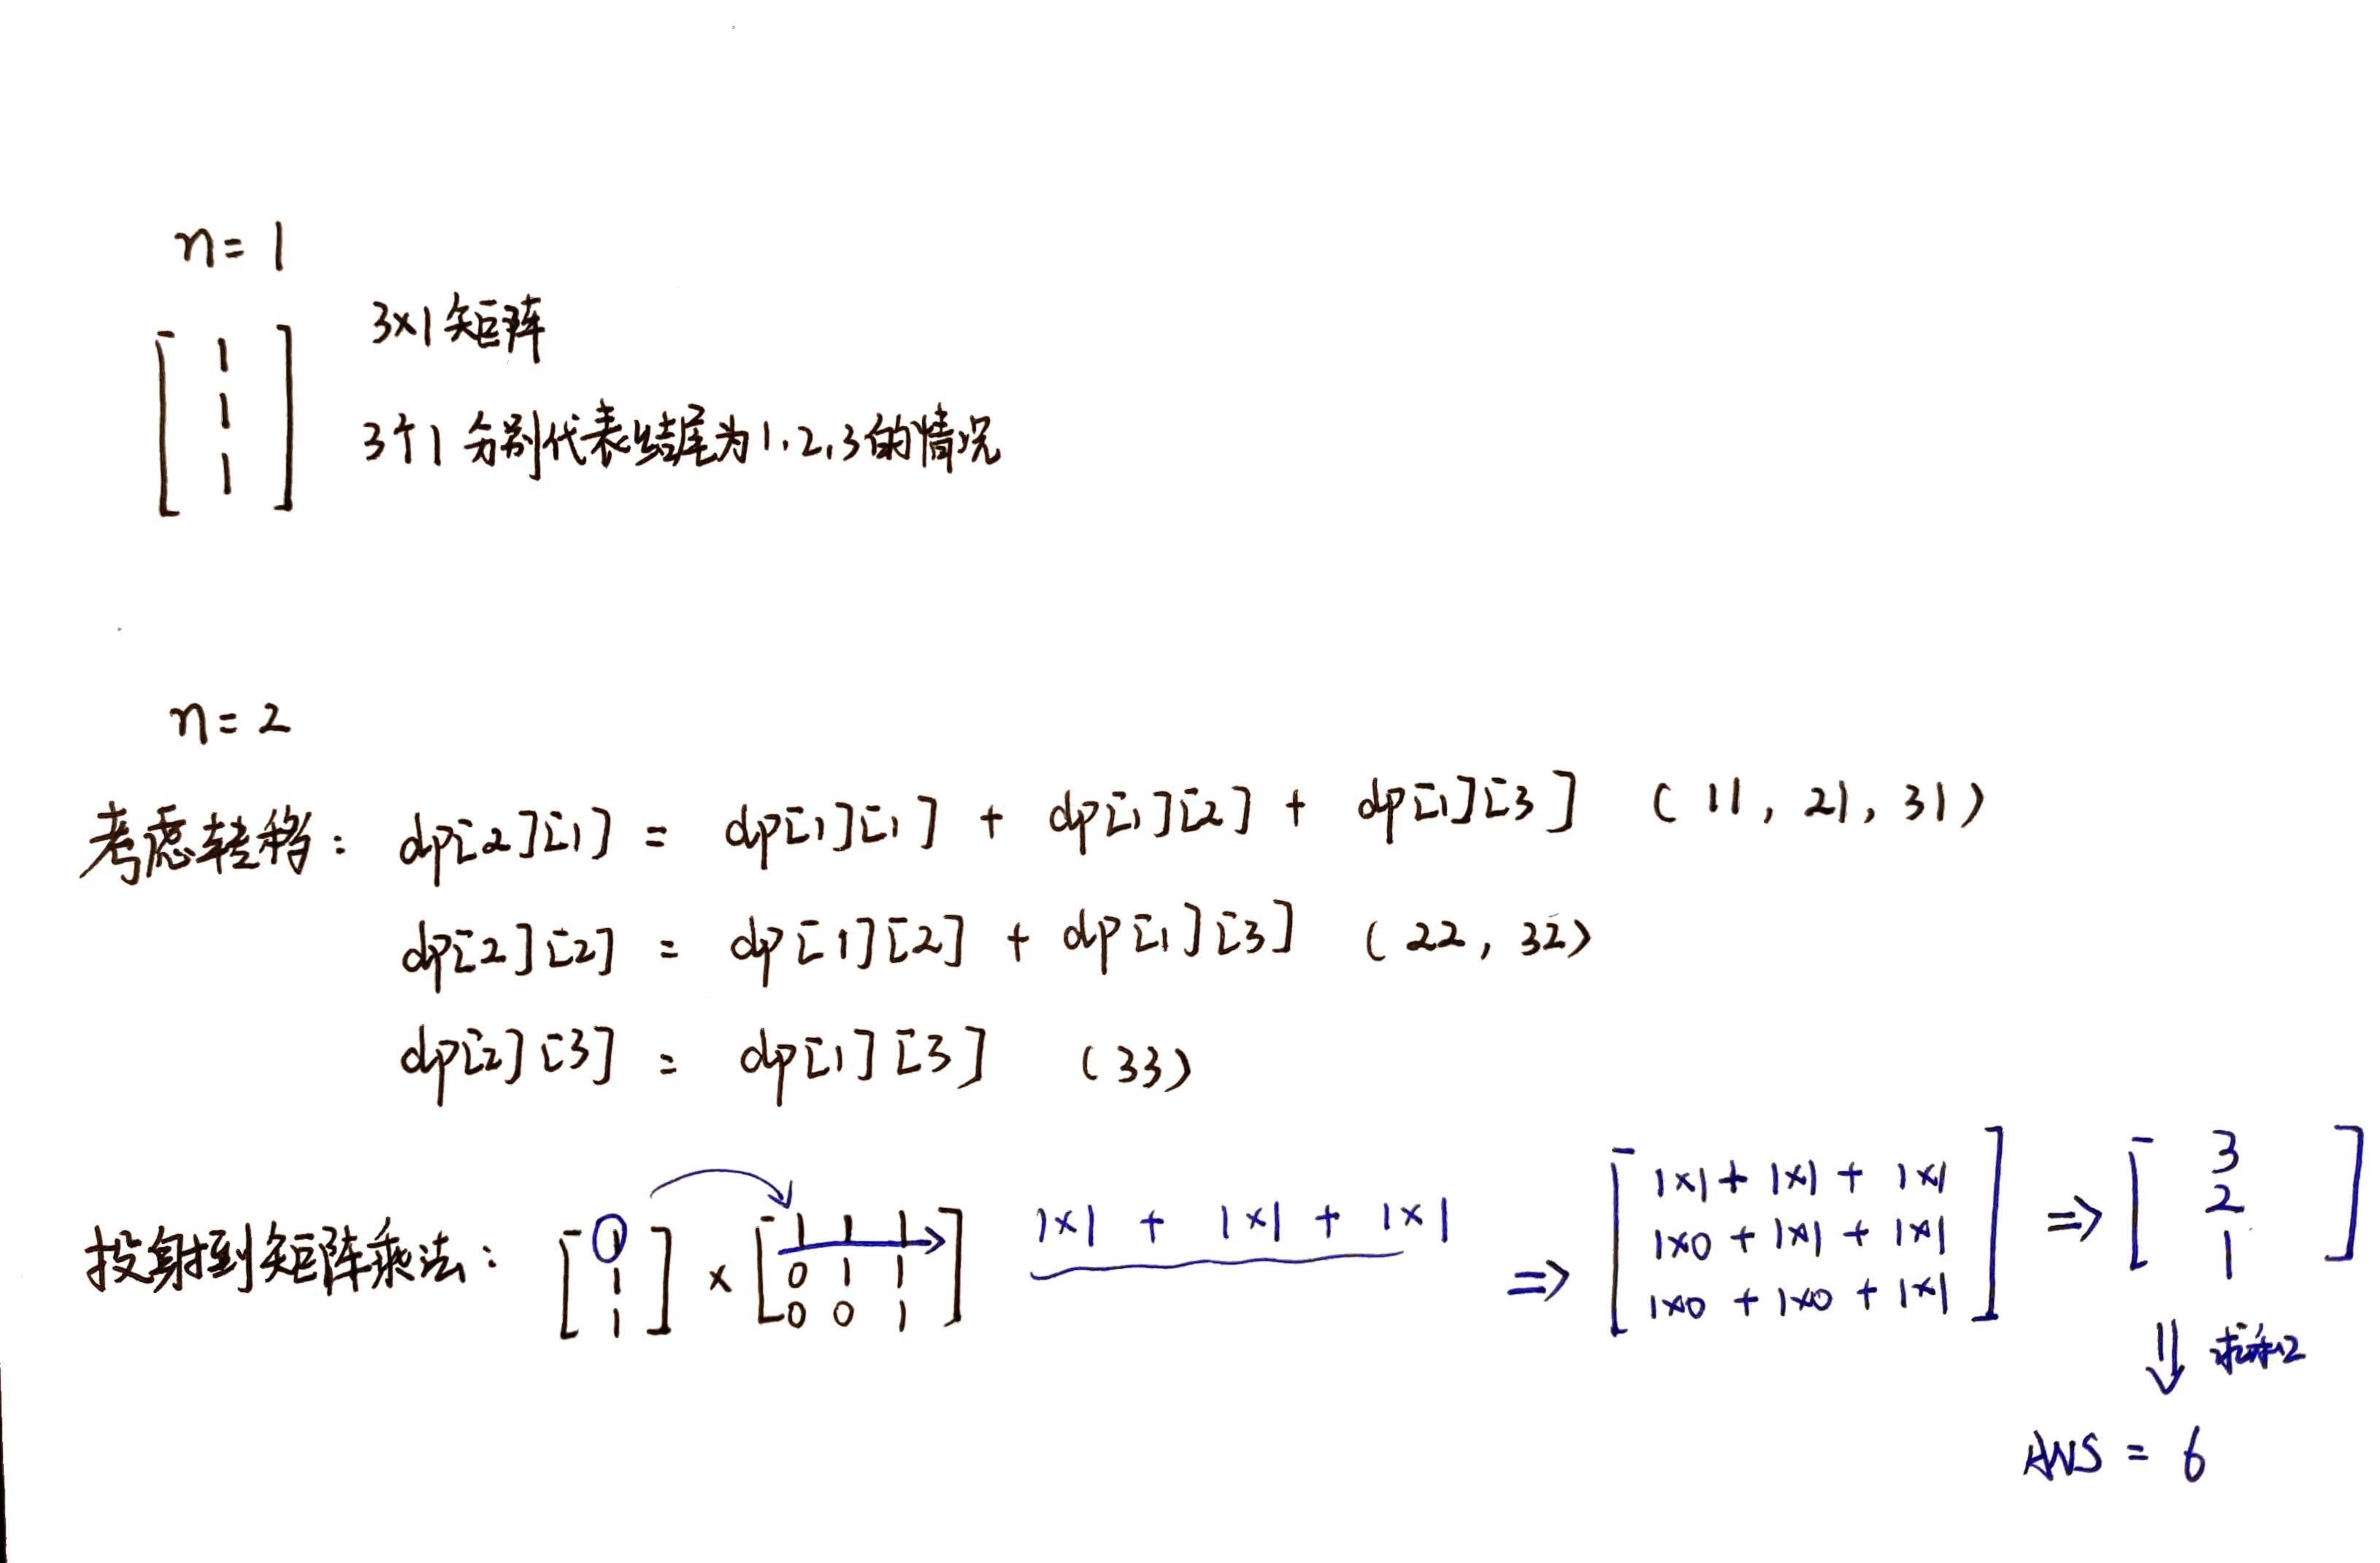 n=1
3×1矩阵
[1
1
1]
3个1分别代表结尾为1,2,3的情况
n=2
考虑转移: dp[2][1] = dp[1][1] + dp[1][2] + dp[1][3] (11, 21, 31)
dp[2][2] = dp[1][2] + dp[1][3] (22, 32)
dp[2][3] = dp[1][3] (33)
投射到矩阵乘法:
[1
1
1]
×
[1 1 1
0 1 1
0 0 1]
1×1 + 1×1 + 1×1
⇒
[1×1 + 1×1 + 1×1
1×0 + 1×1 + 1×1
1×0 + 1×0 + 1×1]
⇒
[3
2
1]
⇓ 求和
ANS = 6